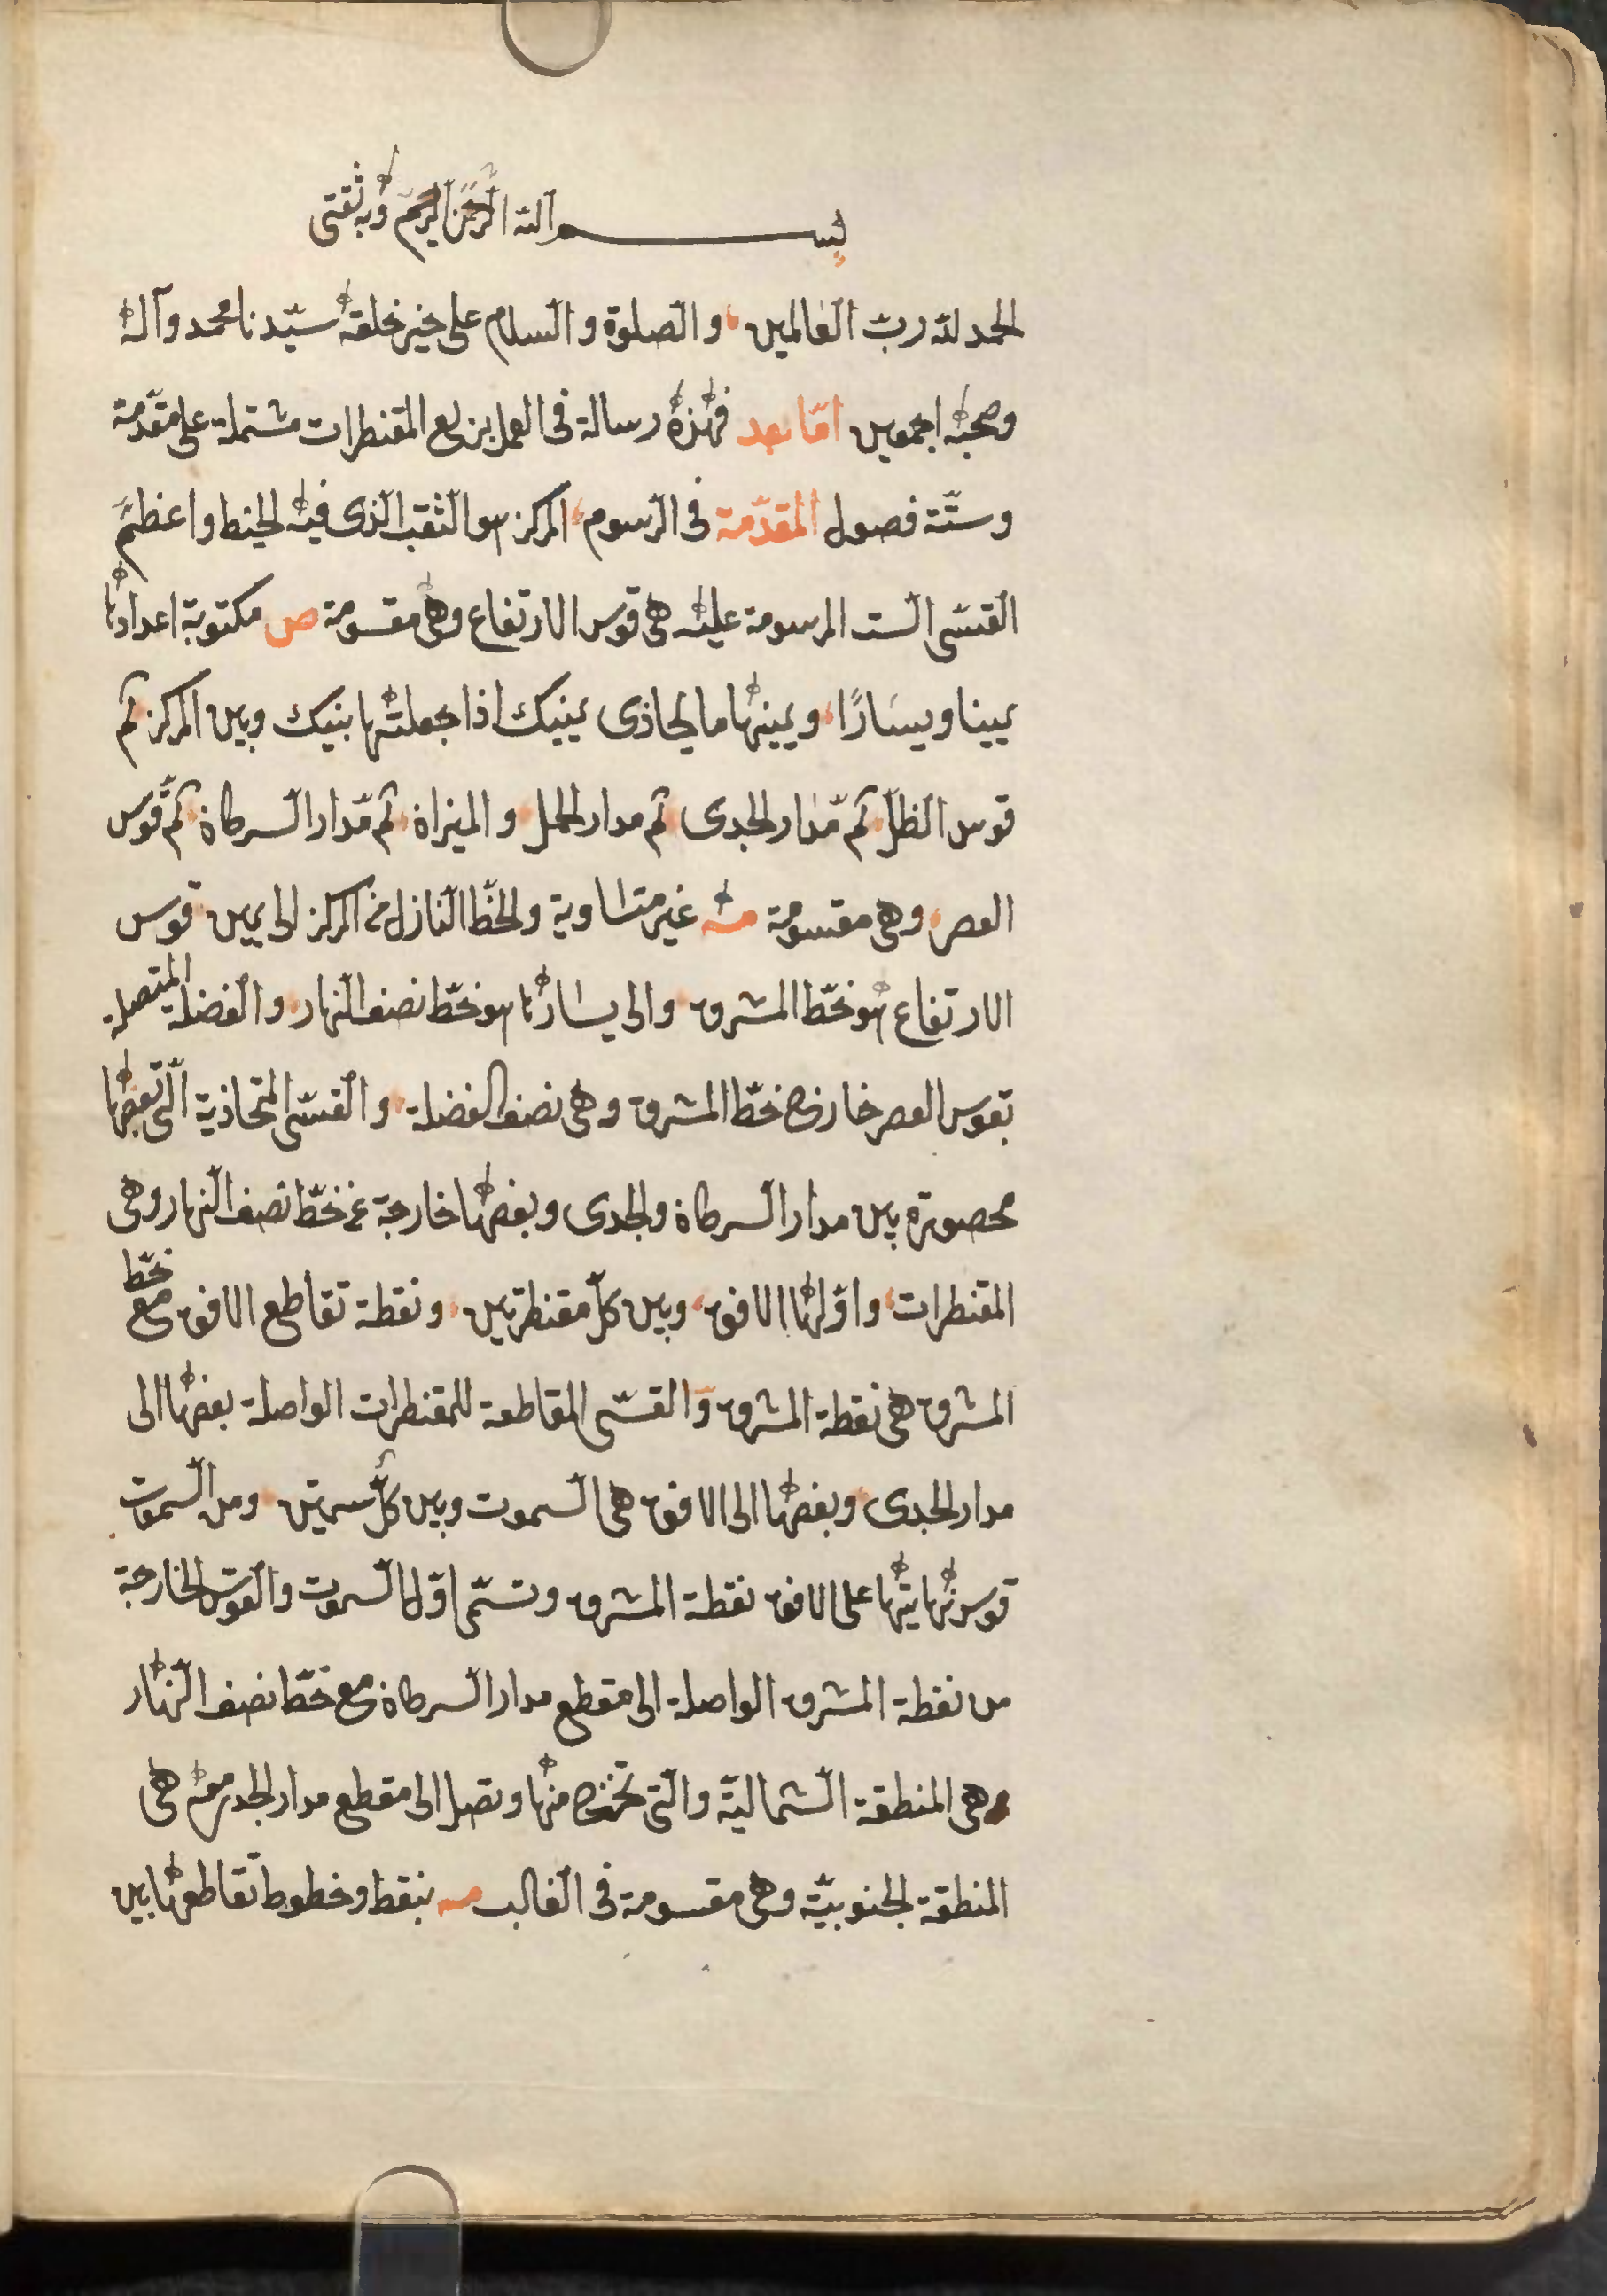 بسم الله الرحمن الرحيم وبه ثقتى
الحمد لله رب العالمين والصلوة والسلام على خير خلقه سيّدنا محمد وآله
وصحبه اجمعين امّا بعد فهذه رسالة فى العمل بربع المقنطرات مشتملة على مقدّمة
وستّة فصول المقدّمة فى الرسوم المركز هو الثقب الذى فيه الخيط واعظم
القسّى الست المرسومة عليه هى قوس الارتفاع وهى مقسومة ص مكتوبة اعدادها
يمينا ويسارًا ويمينها ما يحاذى يمينك اذا جعلتها بنيك وبين المركز ثم
قوس الظل ثم مدار الجدى ثم مدار الحمل والميزان ثم مدار السرطان ثم قوس
العصر وهى مقسومة غير متساوية والخطّ النازل من المركز الى يمين قوس
الارتفاع هو خطّ المشرق والى يسارها هو خطّ نصف النهار والفضلة المتصلة
بقوس العصر خارج خطّ المشرق وهى نصف الفضلة والقسّى المتحاذية التى بعضها
محصورة بين مدار السرطان والجدى وبعضها خارجة عن خطّ نصف النهار وهى
المقنطرات واوّلها الافق وبين كلّ مقنطرتين ونقطة تقاطع الافق مع خطّ
المشرق هى نقطة المشرق والقسّى المقاطعة للمقنطرات الواصلة بعضها الى
مدار الجدى وبعضها الى الافق هى السموت وبين كلّ سمتين ومن السموت
قوس نهايتها على الافق نقطة المشرق وتسمّى اوّل السموت والقوس الخارجة
من نقطة المشرق الواصلة الى مقطع مدار السرطان مع خطّ نصف النهار
هى المنطقة الشماليّة والتى تخرج منها وتصل الى مقطع مدار الجدى معه هى
المنطقة الجنوبيّة وهى مقسومة فى الغالب بنقط وخطوط تقاطعها بين